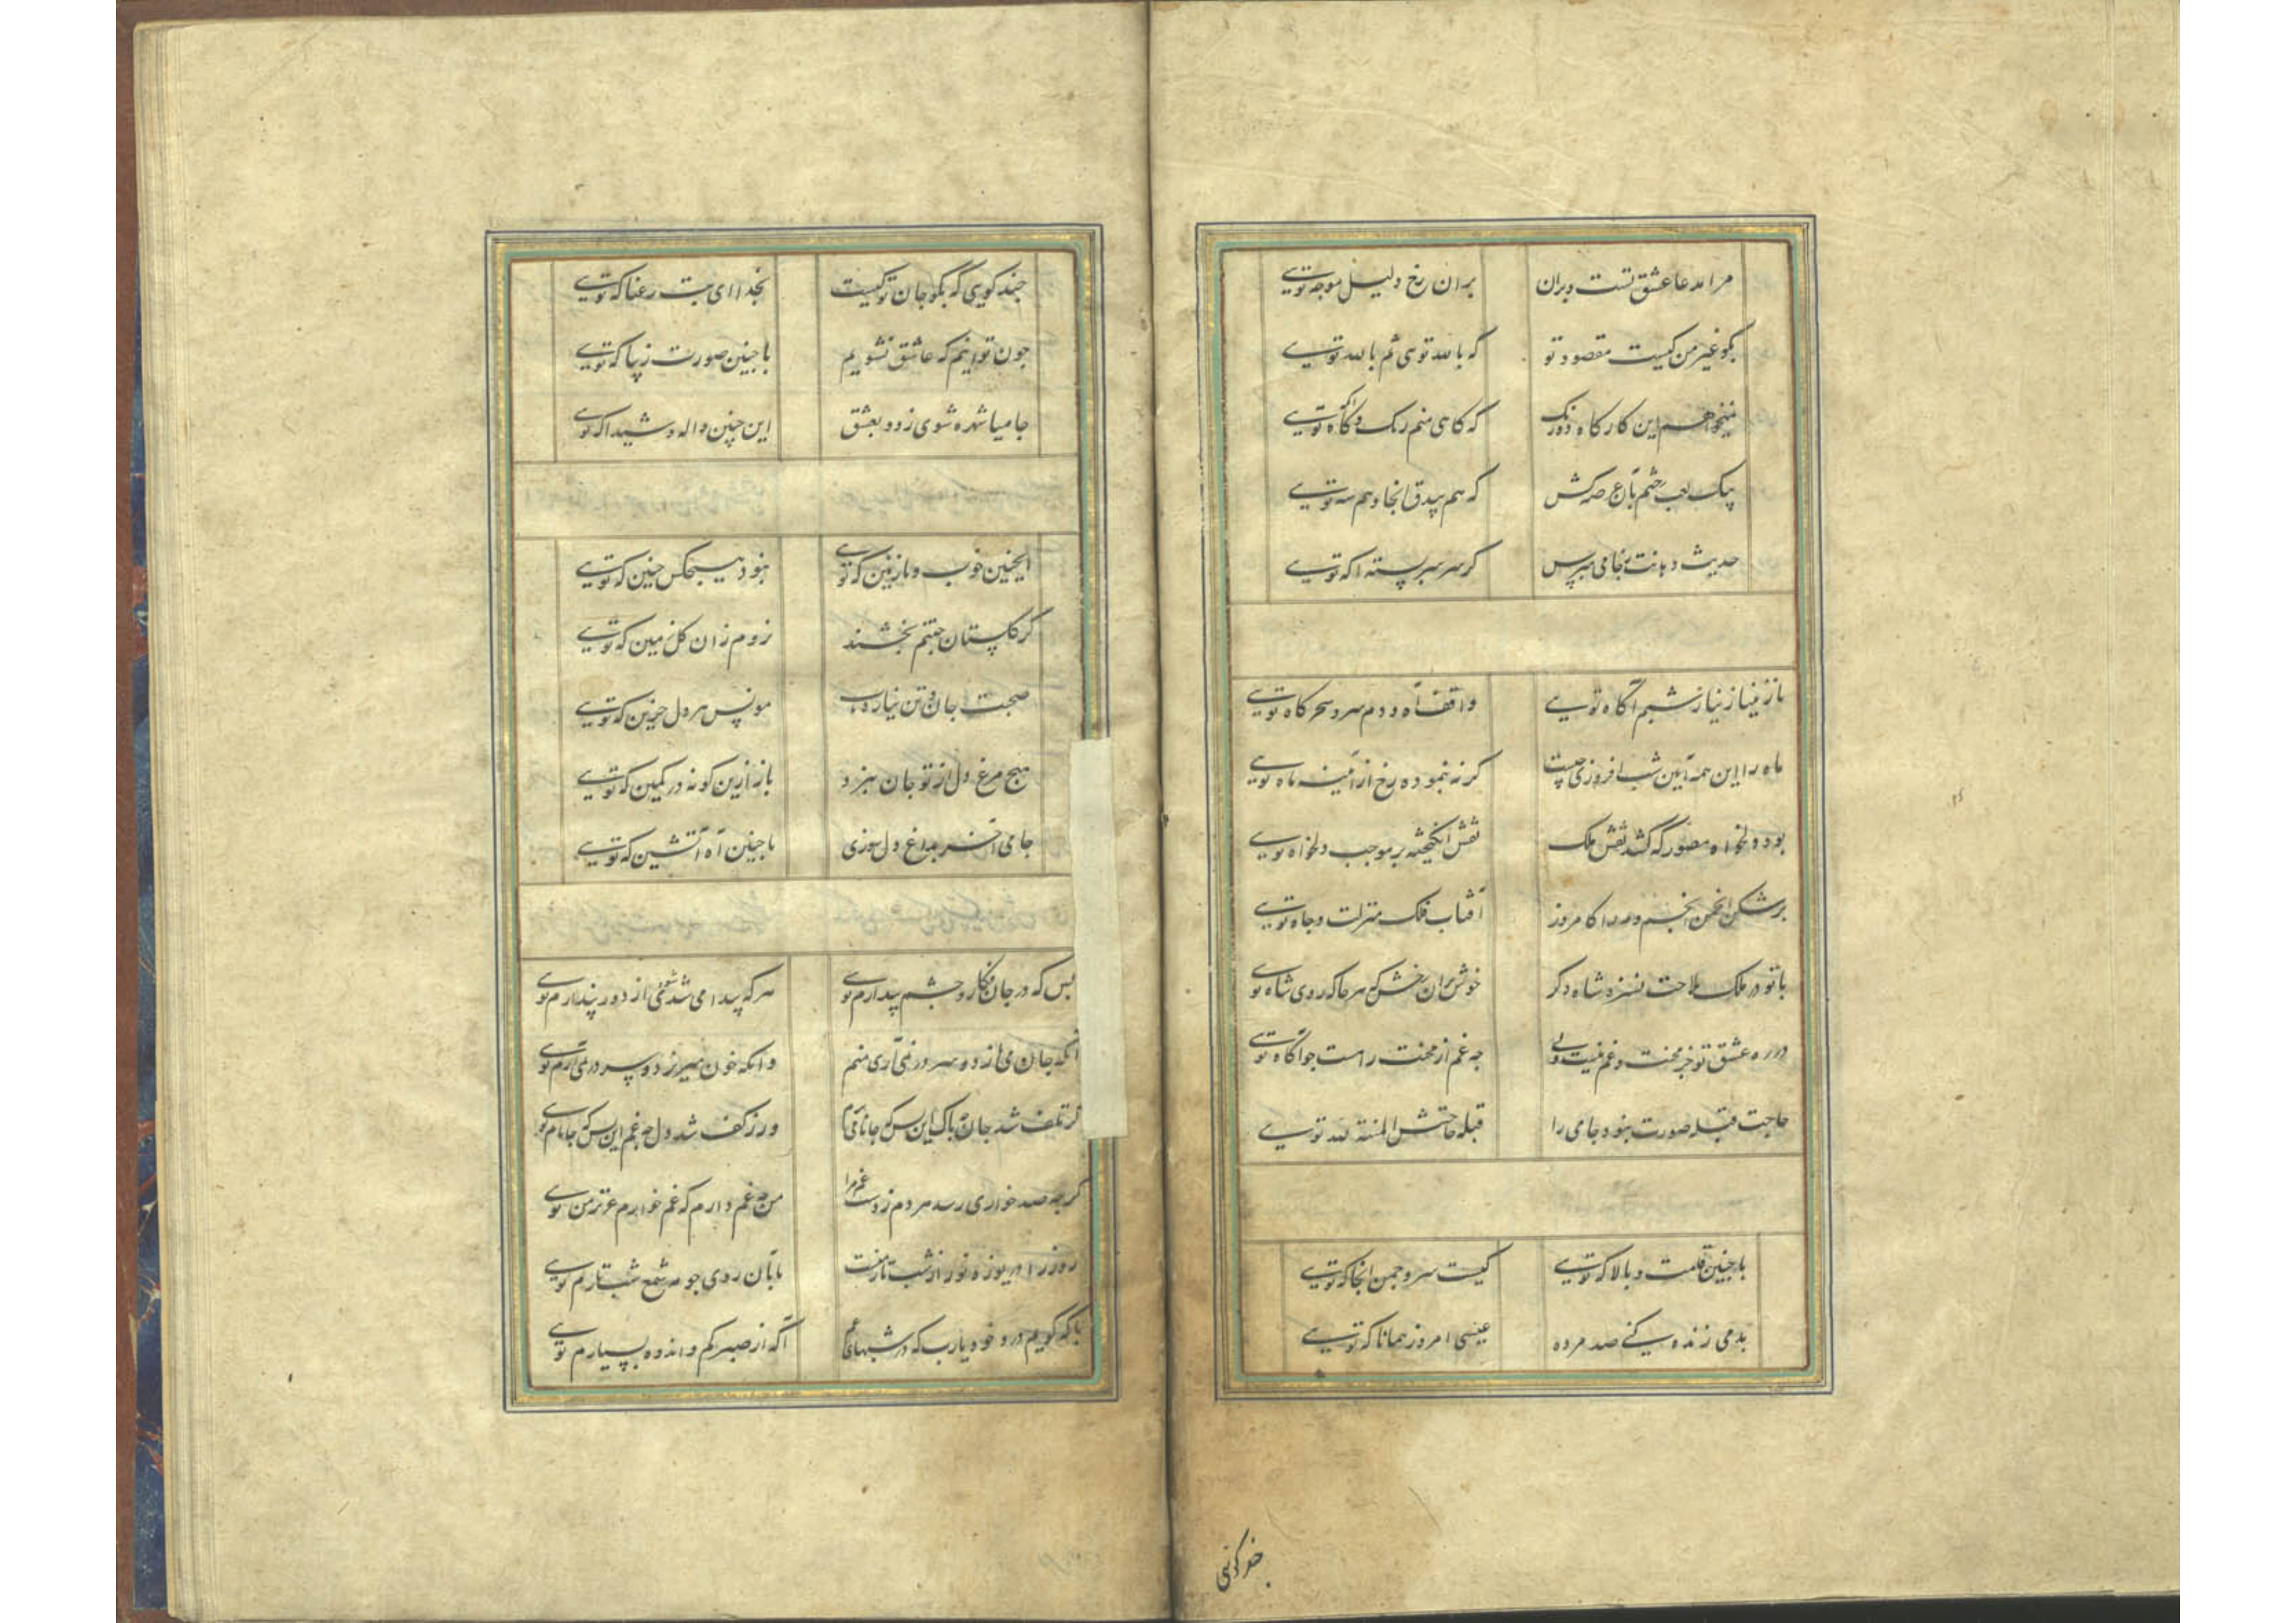 مرا مدعا عشق تست و بران
بران رخ دلیل موجه تویی
بگو غیر من کیست مقصود تو
که بالله توی ثم بالله تویی
نیخواهم این کارکاه دورنک
که کاهی منم رنک و کاه تویی
که هم بیدق انجا و هم شه تویی
حدیث دهانت ز جامی مپرس
که سر بسته تویی
نازنینا ز نیاز شبم آگاه تویی
واقف آه و دم سرد سحرکاه تویی
ماه را این همه آیین شب افروزی چیست
کر نه بنموده رخ از آینه ماه تویی
بود دلخواه مصور که کشد نقش ملک
نقش انکیخته بر موجب دلخواه تویی
برشکن انجمن انجم و مه را کامروز
آفتاب فلک منزلت و جاه تویی
با تو در ملک ملاحت نسزد شاه دکر
خوش بران رخش که هر جا که روی شاه تویی
در ره عشق تو جز محنت و غم نیست ولی
چه غم از محنت راهست چو آگاه تویی
حاجت قبله صورت نبود جامی را
قبله حاجتش المنة لله تویی
با چنین قامت و بالا که تویی
کیست سرو چمن انجا که تویی
بدمی زنده کنی صد مرده
عیسی امروز همانا که تویی
چند کویی
چند کویی که بکو جان تو کیست
بخدا ای بت رعنا که تویی
چون توانم که عاشق نشویم
با چنین صورت زیبا که تویی
جامیا شهره شوی زود بعشق
این چنین واله و شیدا که تویی
اینچنین خوب و نازنین که تویی
نبود هیچکس چنین که تویی
کر کلستان جنتم بخشند
نروم زان کل زمین که تویی
صحبت جان و تن نیارد تاب
مونس هر دل حزین که تویی
هیچ مرغ دل از تو جان نبرد
باز ازین کونه در کمین که تویی
جامی آخر بداغ دل سوزی
با چنین آه آتشین که تویی
بس که در جان فکار و چشم بیدارم تویی
هر که پیدا می شود از دور پندارم تویی
آنکه جان می بازد و سر در نمی آری منم
وانکه خون میریزد و سر در نمی آرم تویی
کر تلف شد جان چه باک این بس که جانانم
ور ز کف شد دل چه غم این بس که جانانم تویی
کر چه صد خواری رسد هر دم ز دست غم مرا
من چه غم دارم که غم خوارم عزیز من تویی
روز را دریوزه نور از شب تار منست
تا بان روی چو مه شمع شب تارم تویی
با که کویم درد خود یارب که در شبهای غم
آکه از صبر کم و اندوه بسیارم تویی